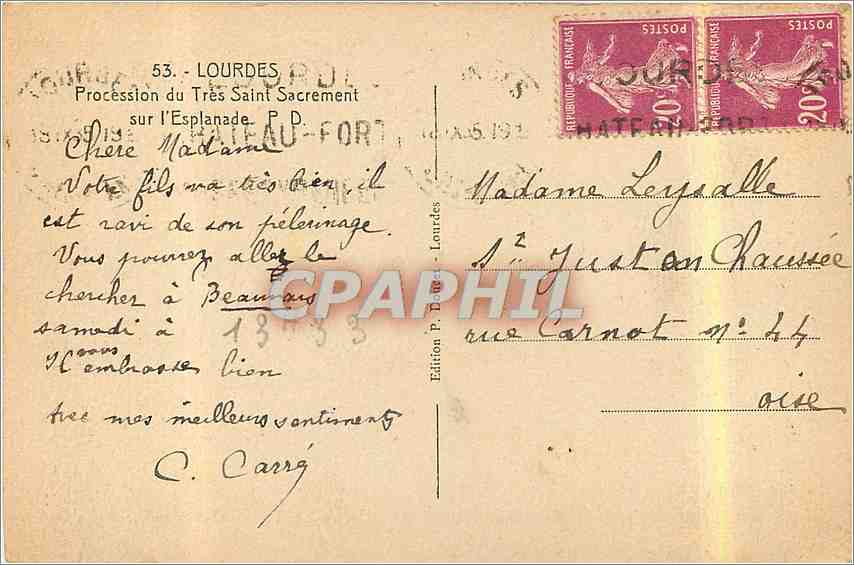 53. - LOURDES
Procession du Très Saint Sacrement
sur l'Esplanade P. D.
Chère Madame
Votre fils va très bien il
est ravi de son pélerinage.
Vous pourrez aller le
chercher à Beauvais
samedi à 13 33
Il vous embrasse bien
avec mes meilleurs sentiments
C. Carré
Edition P. Doucet - Lourdes
Madame Leysalle
St Just en Chaussée
rue Carnot No 44
oise
REPUBLIQUE FRANÇAISE
POSTES
20c
REPUBLIQUE FRANÇAISE
POSTES
20c
LOURDES
CHATEAU-FORT
CPAPHIL